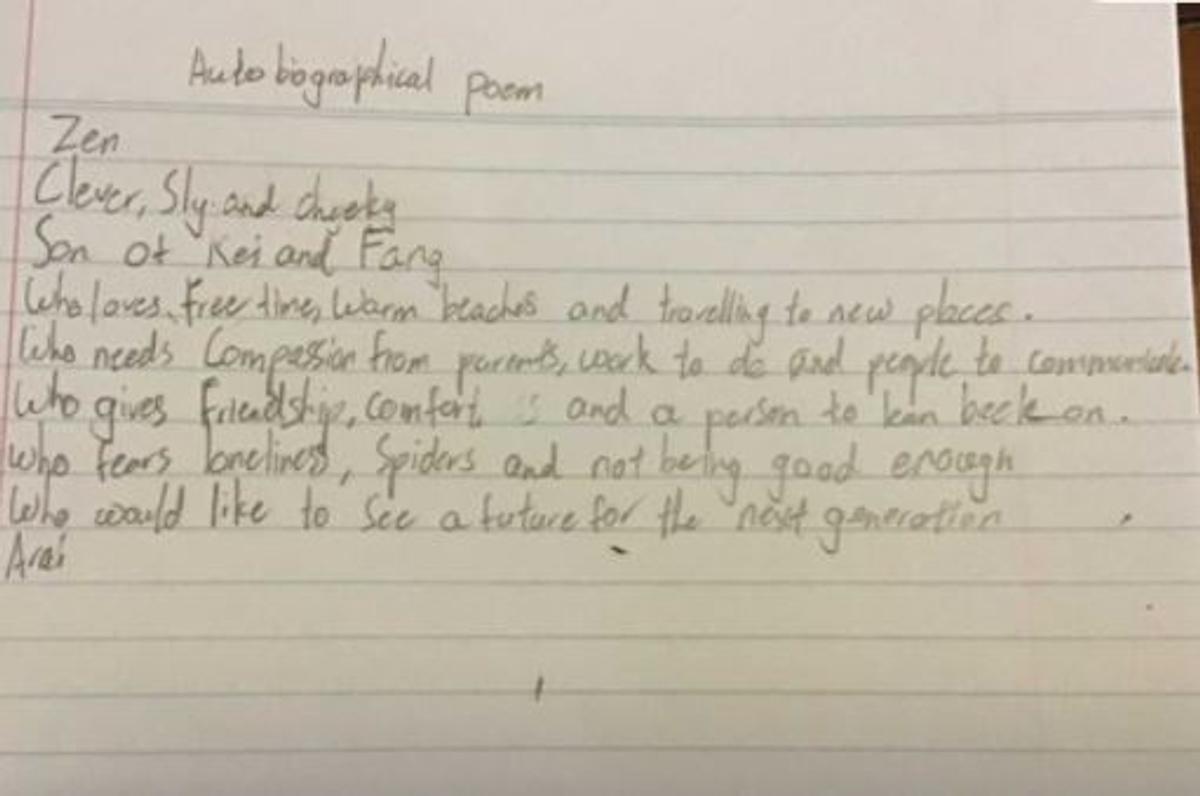 Autobiographical Poem
Zen
Clever, Sly and cheeky
Son of Kei and Fang
Who loves, free time, Warm beaches and travelling to new places.
Who needs Compassion from parents, work to do and people to communicate.
Who gives friendship, comfort and a person to lean back on.
Who fears loneliness, Spiders and not being good enough
Who would like to see a future for the next generation
Arai